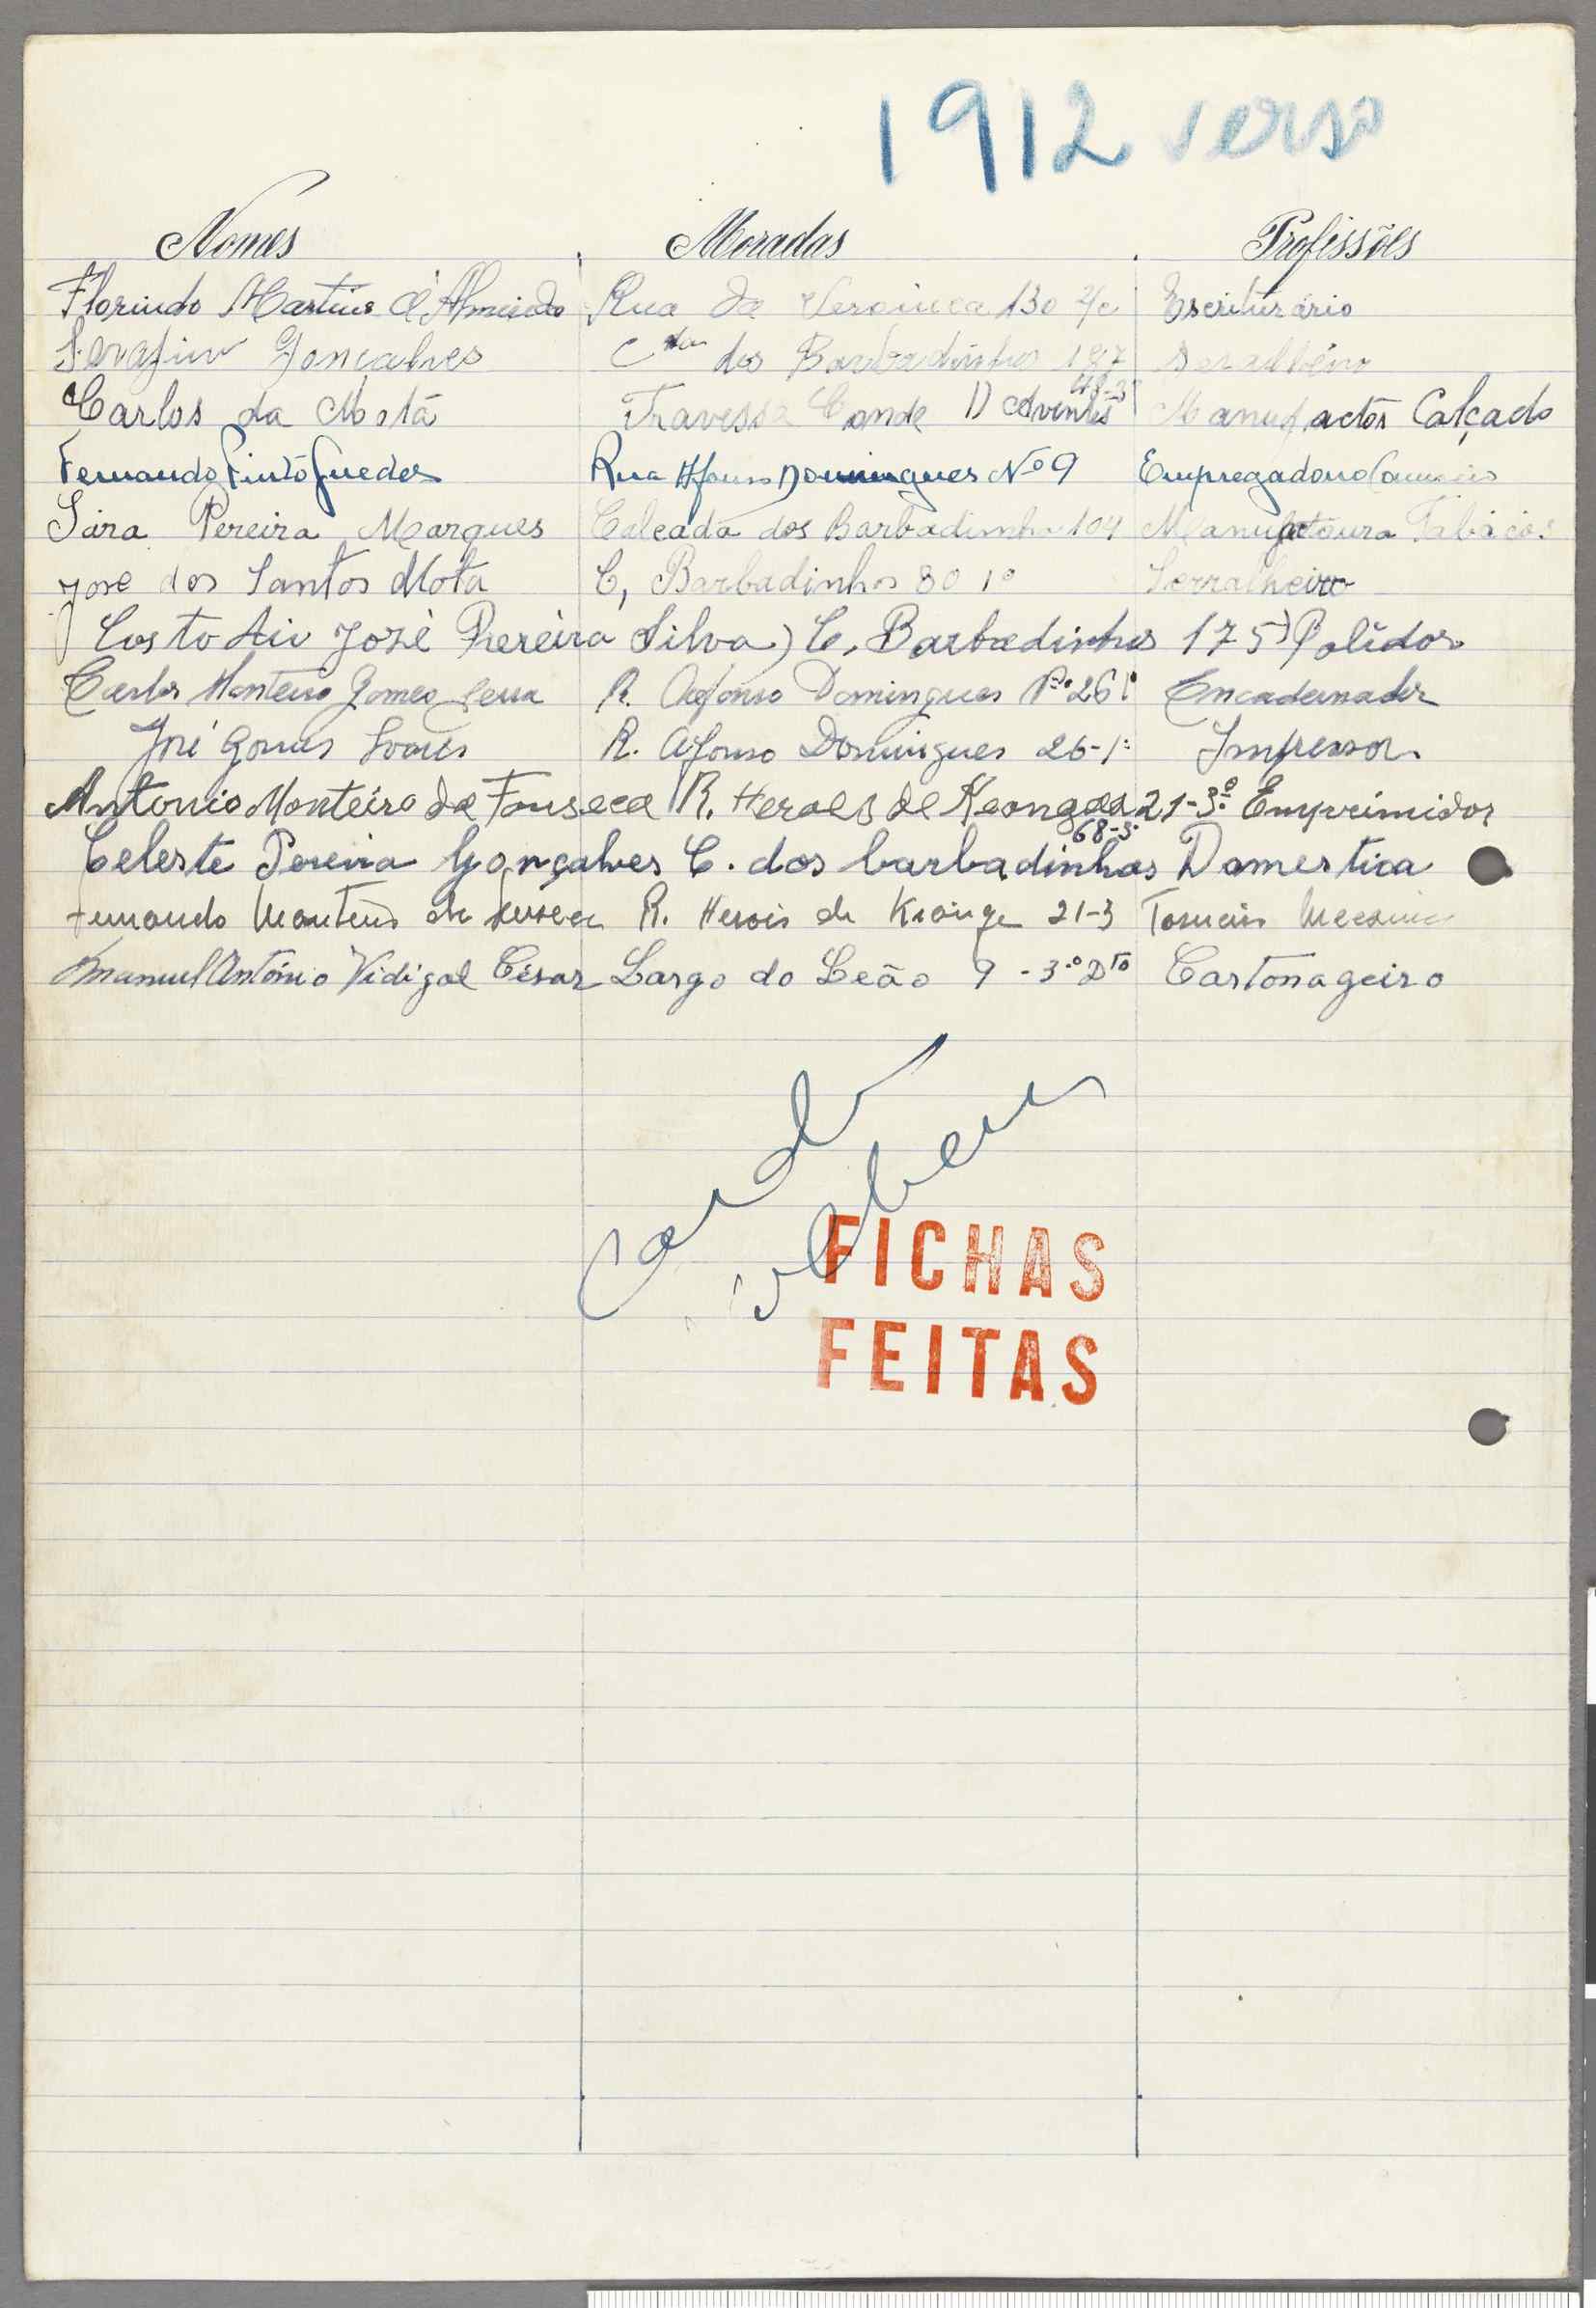 1912 verso
Nomes Moradas Profissões
Florindo Martins d'Almeida Rua da Veronica 130 r/c Escriturário
Serafim Gonçalves C dos Barbadinhos 187
48-3º
Carlos da Motá Travessa Conde D Avintes Manufactor Calçado
Fernando Pinto Guedes Rua Afonso Domingues Nº 9 Empregado no Comercio
Sára Pereira Marques Calçada dos Barbadinhos 104 Tabácos.
José dos Santos Mota C, Barbadinhos 80 1º Serralheiro
Custodio José Pereira Silva) C, Barbadinhos 175) Polidor
Carlos Monteiro Gomes R. Afonso Domingues Nº 26 1º Encadernador
José Gomes Soares R. Afonso Domingues 26-1º Impressor
Antonio Monteiro da Fonseca R. Heroes de Keonga 21-3º Emprimidor
68-3º
Celeste Pereira Gonçalves C. dos barbadinhos Domestica
Fernando Monteiro da Fonseca R. Herois de Kionga 21-3 Torneiro Mecanico
Emanuel António Vidigal César Largo do Leão 9 - 3º Dto Cartonageiro
FICHAS
FEITAS